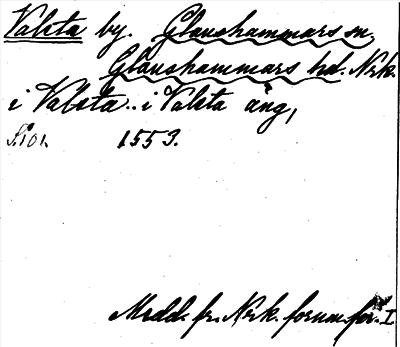 Valsta by. Glanshammars sn,
Glanshammars hd. Nrk.
i Valsta.. i Valsta äng,
S. 101. 1553.
Medd. fr. Nrk. fornm. för. I